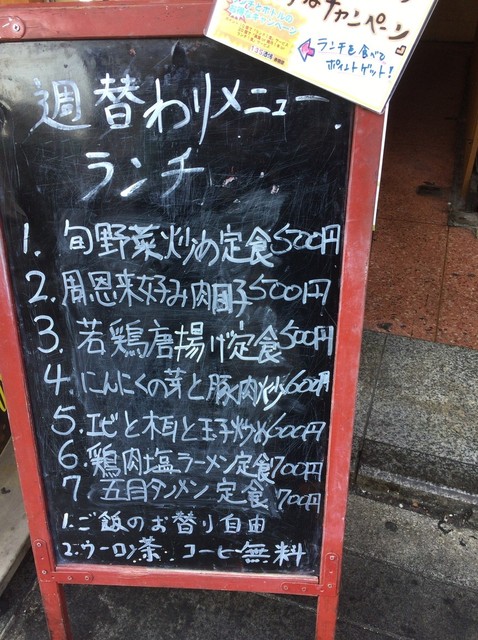 なキャンペーン
ランチも食べて
ポイントゲット!
週替わりメニュー
ランチ
1. 旬野菜炒め定食500円
2. 周恩来好み肉団子500円
3. 若鶏唐揚げ定食500円
4. にんにくの芽と豚肉炒600円
5. エビと木耳と玉子炒め600円
6. 鶏肉塩ラーメン定食700円
7 五目タンメン定食700円
1. ご飯のお替り自由
2. ウーロン茶..コーヒ無料